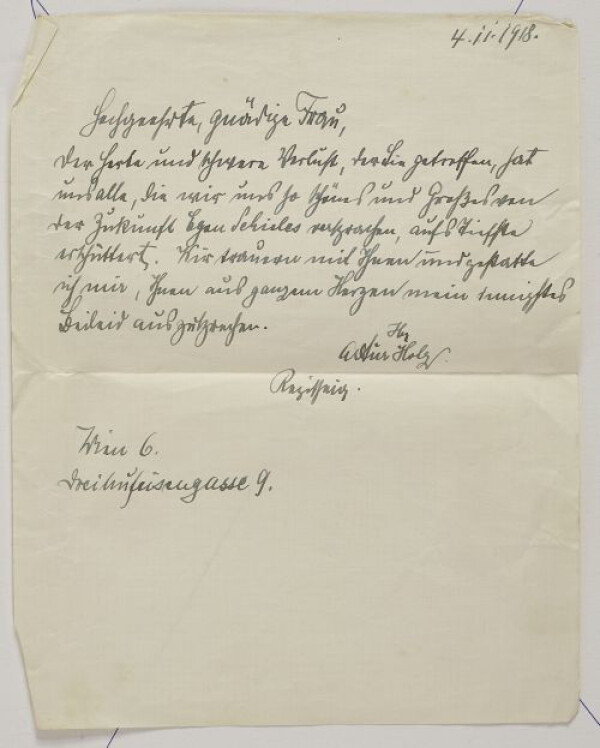 4.11.1918.
Hochgeehrte, gnädige Frau,
Der herbe und schwere Verlust, der Sie getroffen, hat
uns alle, die wir uns so schönes und Großes von
der Zukunft Egon Schieles versprachen, aufs Tiefste
erschüttert. Wir trauern mit Ihnen und gestatte
ich mir, Ihnen aus ganzem Herzen mein innigstes
Beileid auszusprechen.
Ihr
Holz.
Wien 6.
Dreihufeisengasse 9.